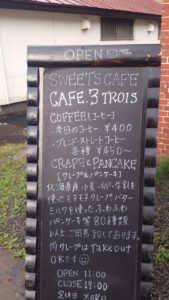 OPEN
SWEET'S CAFE
CAFE.3 TROIS
COFFEE[コーヒー]
・本日のコーヒー ¥400
・ブレンド・ストレートコーヒー
各種 ¥450~
CRAPE&PANCAKE
[クレープ&パンケーキ]
北海道産小麦・卵・牛乳を
使ったモチモチクレープとバター
ミルクを使ったふわふわ
パンケーキ等80種類
以上ご用意しております。
同クレープはtakeout
OKです
OPEN 11:00
CLOSE 19:00
定休日 火曜日